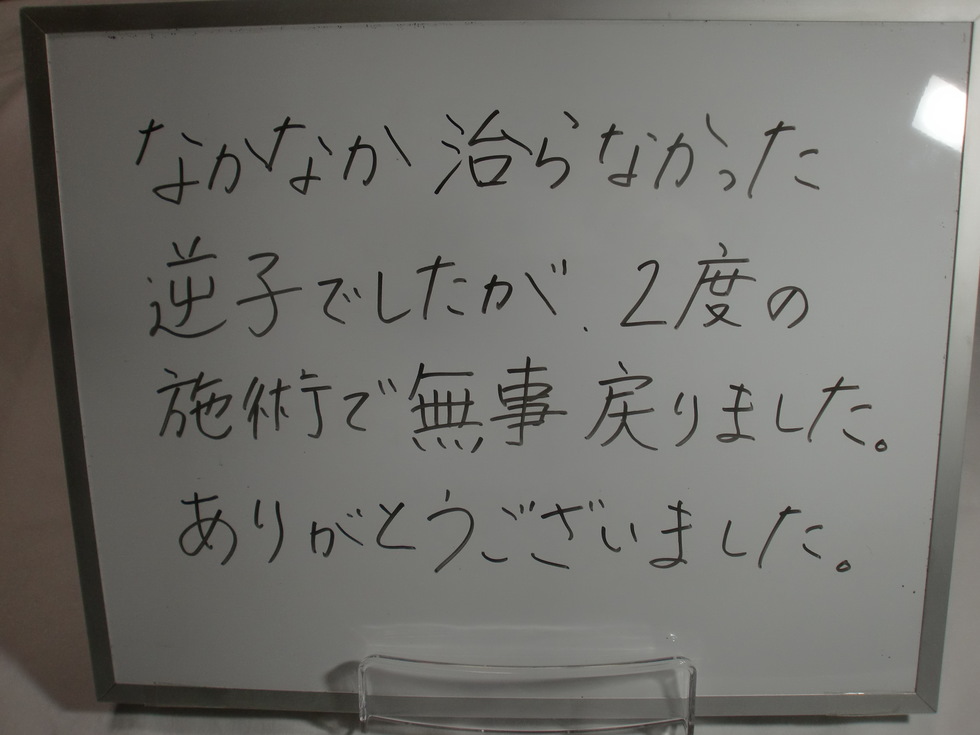 なかなか治らなかった
逆子でしたが、2度の
施術で無事戻りました。
ありがとうございました。